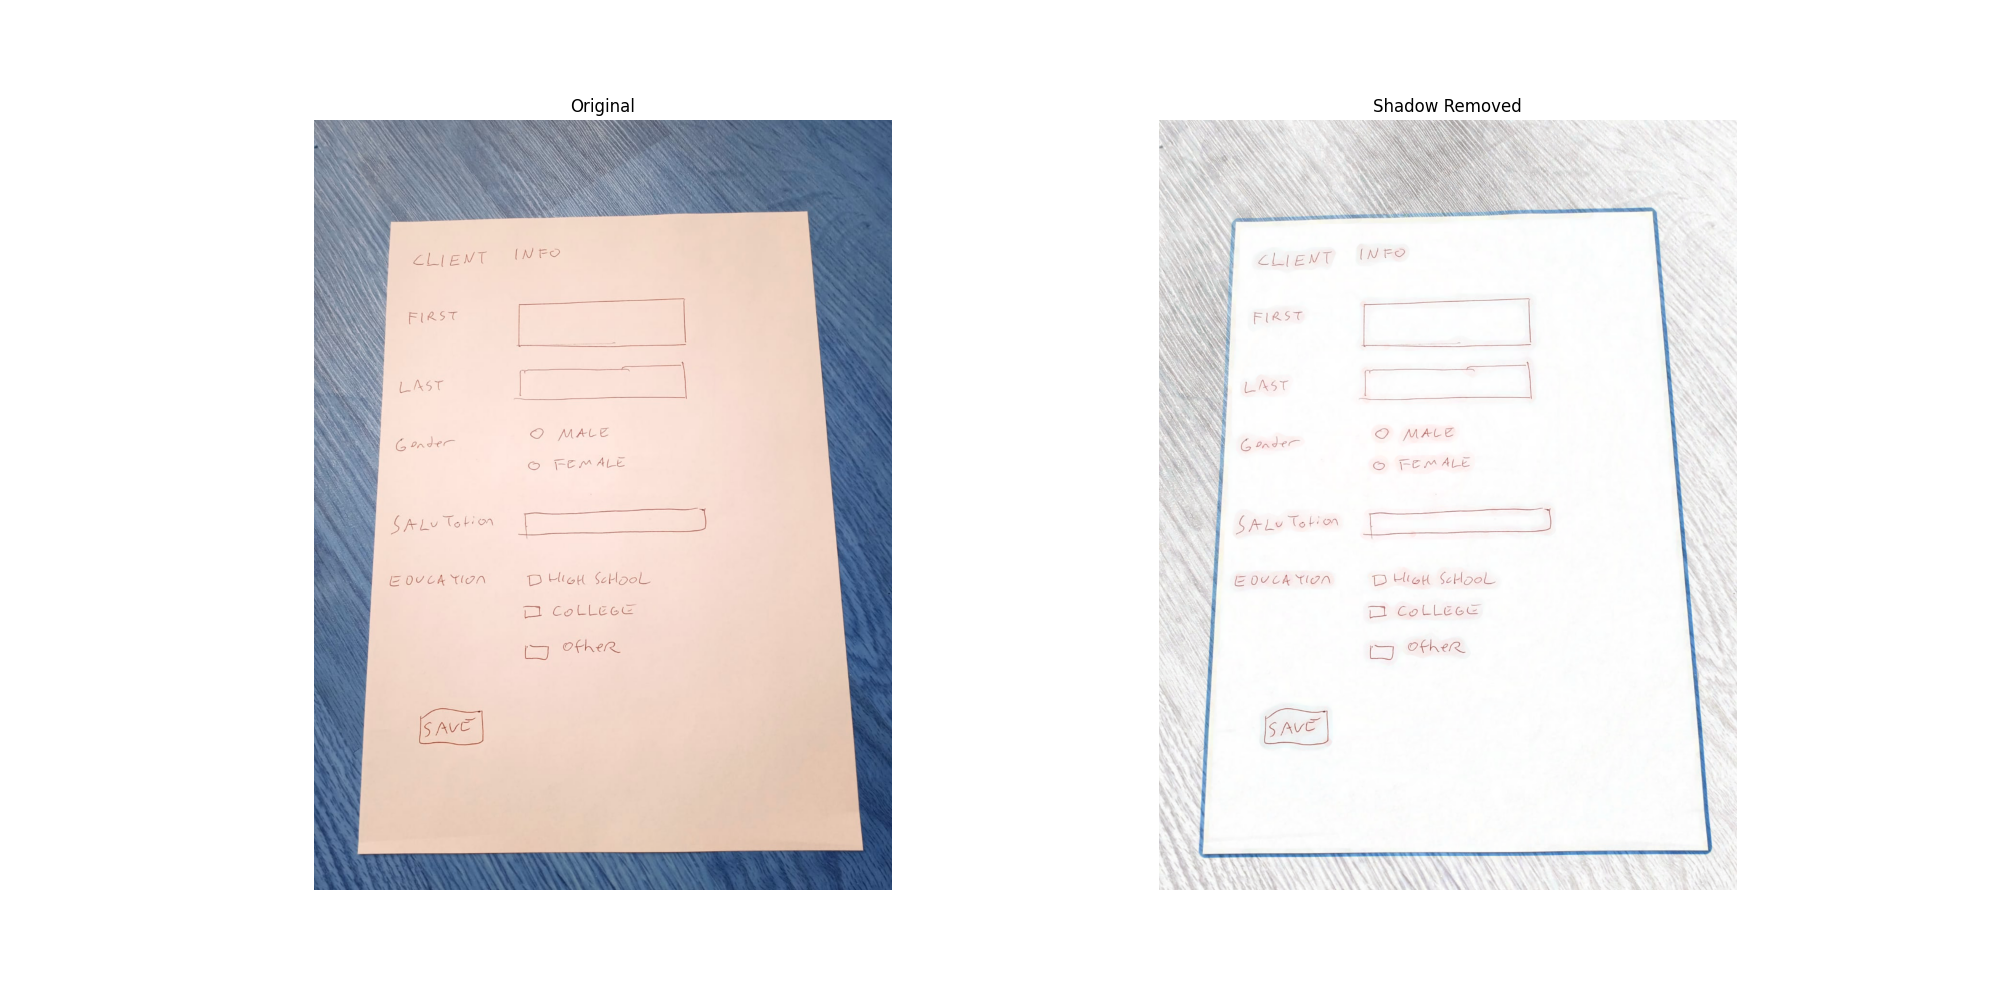 Original
CLIENT INFO
FIRST
LAST
Gender
MALE
FEMALE
SALuTation
EDUCATION
HIGH ScHOOL
COLLEGE
OtheR
SAVE
Shadow Removed
CLIENT INFO
FIRST
LAST
Gender
MALE
FEMALE
SALuTation
EDUCATION
HIGH ScHOOL
COLLEGE
OtheR
SAVE